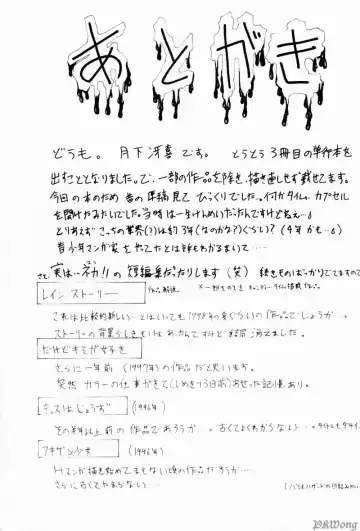 あとがき
どうも。月下冴喜です。とうとう3冊目の単行本を
出すこととなりました。で、一部の作品を除き、描き直しせず載せてます。
今回の本のため昔の原稿見てびっくりでした。何かタイムカプセル
を開けたみたいでした。当時は一生けんめいだったんですけどねえ…。
とりあえずこっちの業界(?)は約3年(なのかな?)ぐらい?(4年かも…。)
青少年マンガ家をやってたとは誰もわかるまいて…
さて、実は…初!!の短編集だったりします(笑)続きものばっかりでてますので
レインストーリー 作品解説
これは比較的新しい…とはいっても1998年の冬ぐらいの作品でしょうか。
ストーリーの背景らしきものはあったんですけど結局消えました。
だけどキミが女好き
さらに一年前(1997年)の作品だと思います。
突然カラーの仕事がきて(しめきり3日前)あせった記憶あり。
キッスはじょうず (1996年)
その半年以上前の作品であろうか…。古くてよくわからない…
フキゲン少女 (1996年)
Hマンガ描き始めてまもない頃の作品だろうか…
さらに古くてわからない…
PKWong